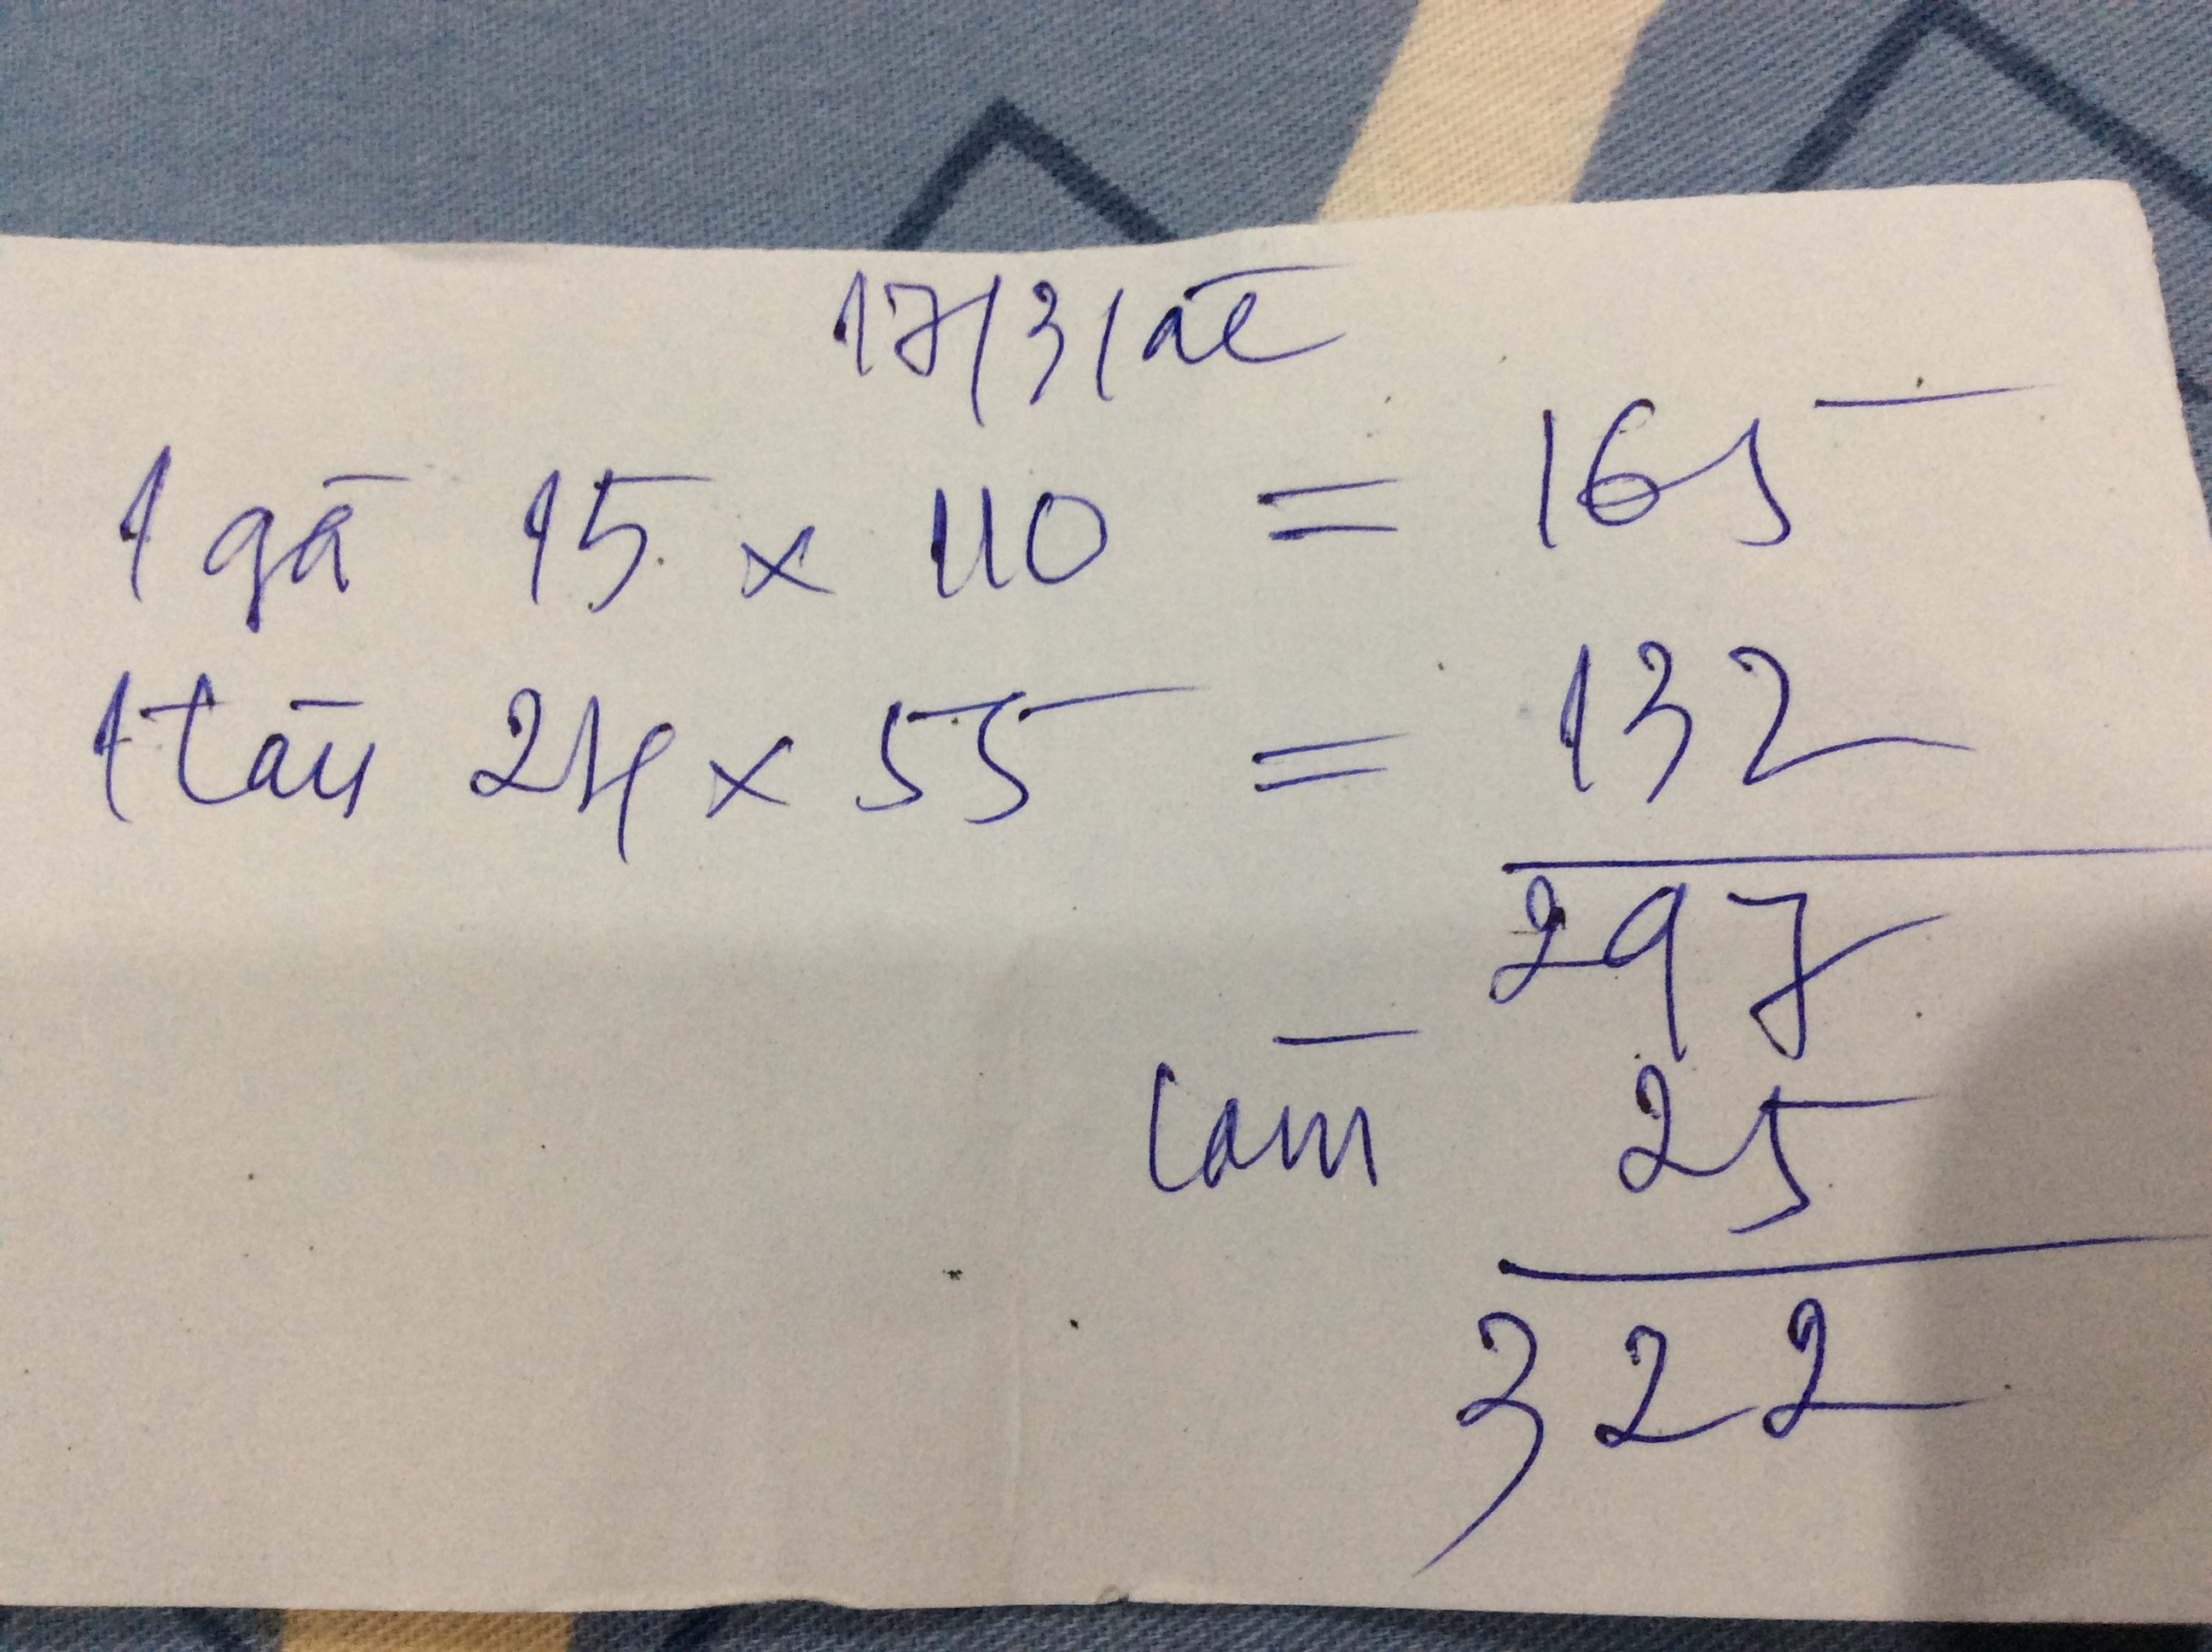 17/3/āc
1 gā 15 x 110 = 165
1 tāu 24 x 55 = 132
297
làm 25
322